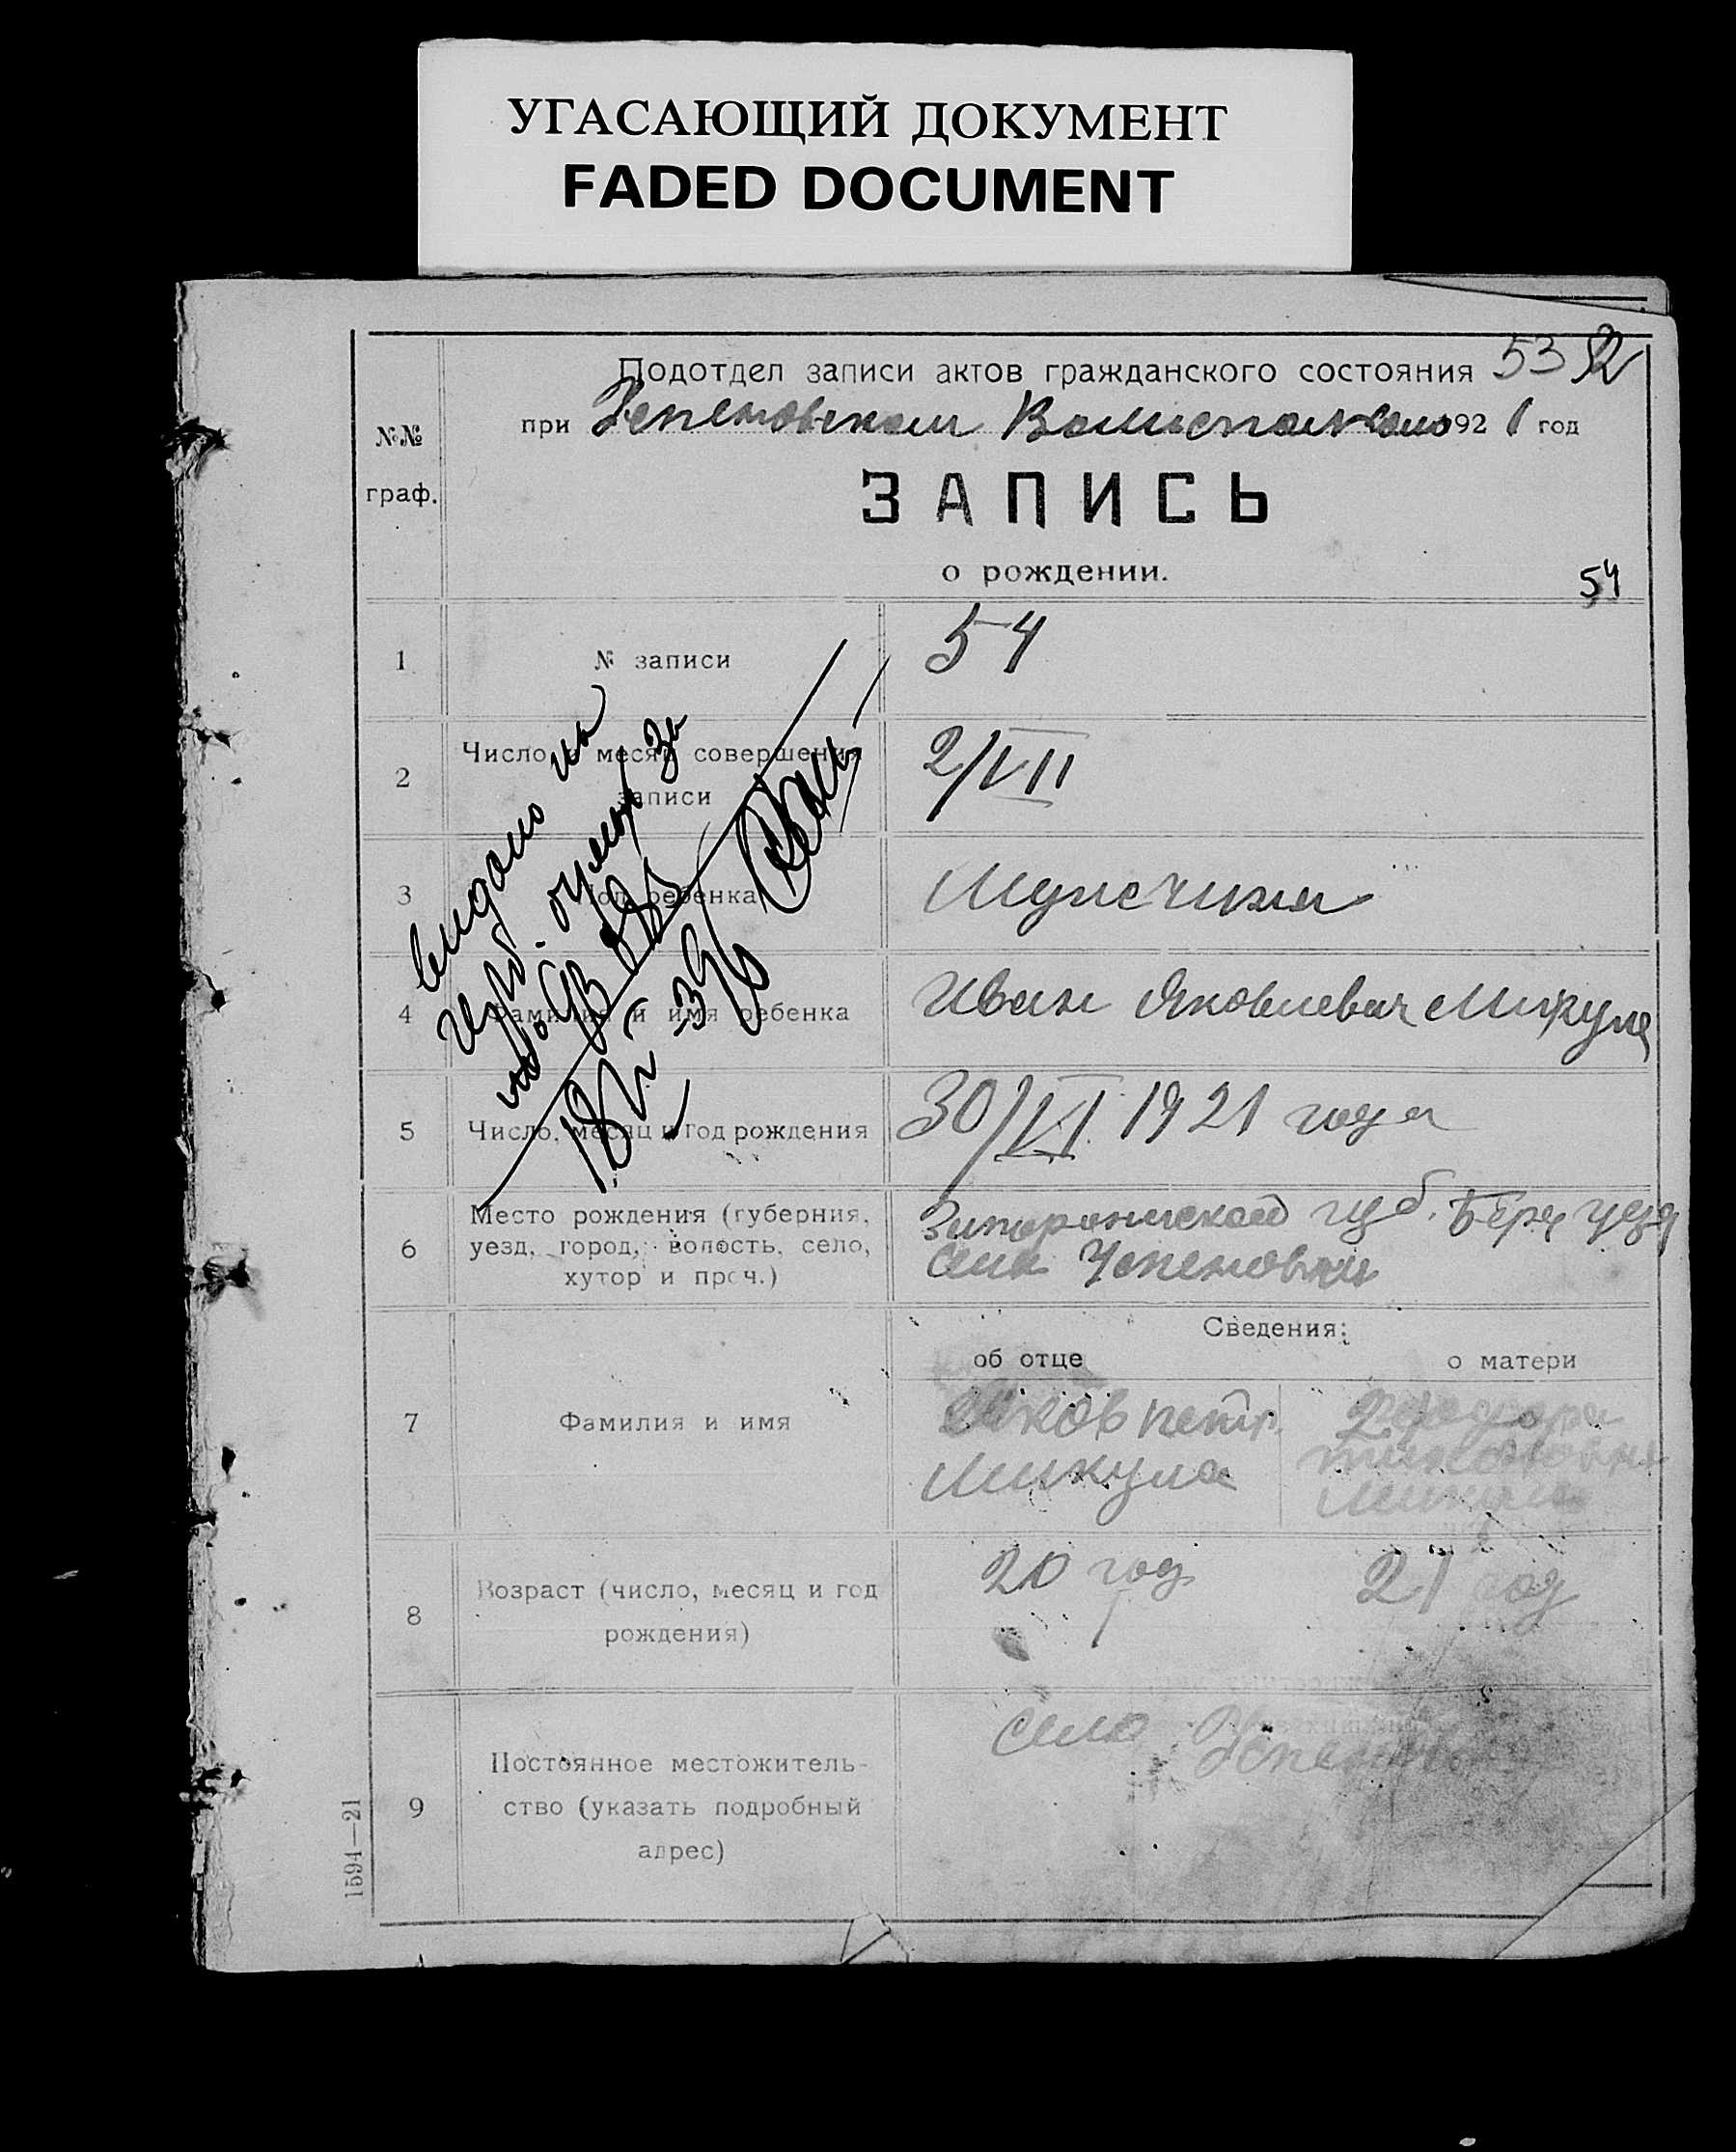 УГАСАЮЩИЙ ДОКУМЕНТ
FADED DOCUMENT
Подотдел записи актов гражданского состояния 53
при Успеновском Волисполкоме 1921 год
№№
граф.
ЗАПИСЬ
о рождении.
54
1 № записи 54
2 Число и месяц совершения записи 2/VII
3 Пол ребенка Мужчина
4 Фамилия и имя ребенка Иван Яковлевич Микула
5 Число, месяц и год рождения 30/VI 1921 года
6 Место рождения (губерния,
уезд, город, волость, село,
хутор и проч.)
губ.
села Успеновки
Сведения:
об отце о матери
7 Фамилия и имя
Яков Петр.
Микула
Микула
8 Возраст (число, месяц и год
рождения)
20 год 21 год
9 Постоянное местожитель-
ство (указать подробный
адрес)
село Успеновка
1594—21
видано
18